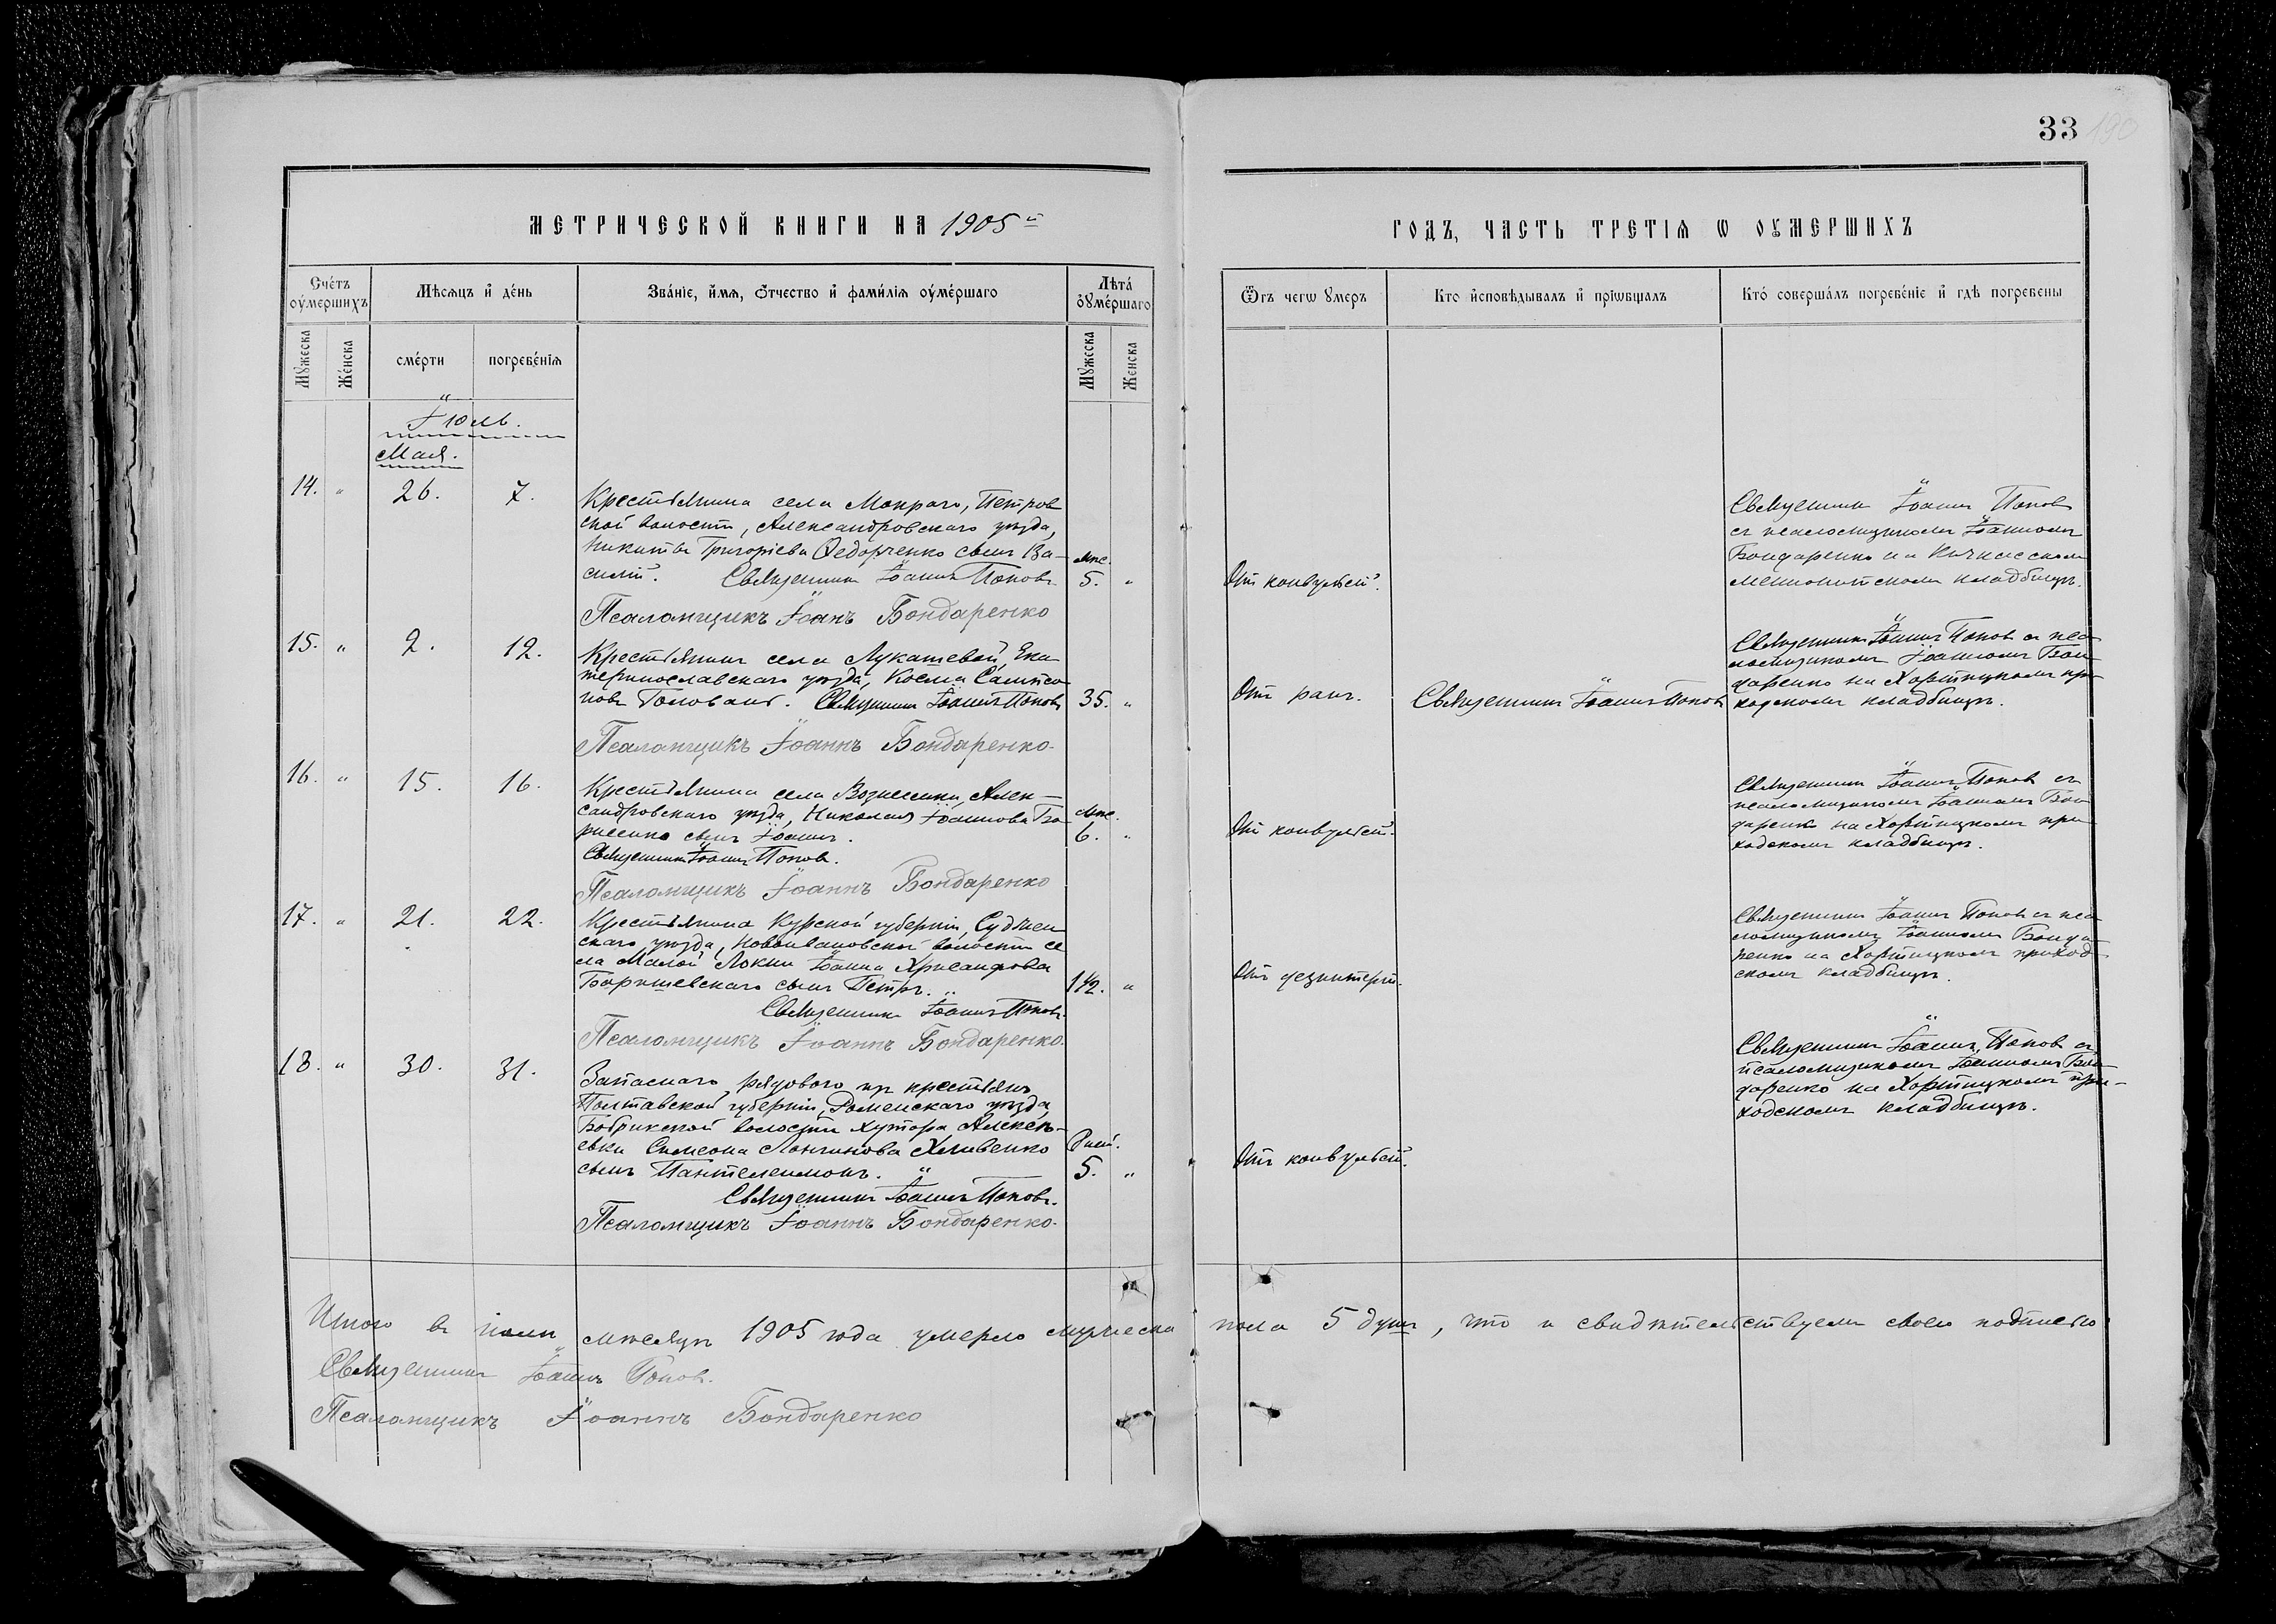 33 190
МЕТРИЧЕСКОЙ КНИГИ НА 1905й
ГОДЪ, ЧАСТЬ ТРЕТІѦ Ѡ ОУМЕРШИХЪ
Счéтъ оумершихъ
Мѣсѧцъ и дéнь
Звáніе, имѧ, Отчество и фамилія оумéршаго
Лѣта оумéршаго
Ѿъ чегѡ умеръ
Кто исповѣдывалъ и пріѡбщалъ
Кто совершáлъ погребéніе и гдѣ погребены
Мужеска
Женска
смéрти
погребéнія
Мужеска
Женска
Іюль.
Мая.
14. " 26. 7.
Крестьянина села Мокраго, Петров
ской волости, Александровскаго уѣзда,
Никиты Григоріева Ѳедорченко сынъ Ва-
силій. Священникъ Іоаннъ Поповъ
Псаломщикъ Іоанъ Бондаренко
мѣс.
5. "
Отъ конвульсій.
Священникъ Іоаннъ Поповъ
съ псаломщикомъ Іоанномъ
Бондаренко на Кичкасскомъ
менонитскомъ кладбищѣ.
15. " 2. 12.
Крестьянинъ села Лукашевой, Ека-
теринославскаго уѣзда, Косма Сампсо
новъ Головань. Священникъ Іоаннъ Поповъ
Псаломщикъ Іоаннъ Бондаренко.
35. "
Отъ ранъ.
Священникъ Іоаннъ Поповъ
Священникъ Іоаннъ Поповъ съ пса
ломщикомъ Іоанномъ Бон
даренко на Хортицкомъ при
ходскомъ кладбищѣ.
16. " 15. 16.
Крестьянина села Вознесенки, Алек-
сандровскаго уѣзда, Николая Іоаннова Бо
рисенко сынъ Іоаннъ.
Священникъ Іоаннъ Поповъ.
Псаломщикъ Іоаннъ Бондаренко
мѣс.
6. "
Отъ конвульсій.
Священникъ Іоаннъ Поповъ съ
псаломщикомъ Іоанномъ Бон
даренко на Хортицкомъ при
ходскомъ кладбищѣ.
17. " 21. 22.
Крестьянина Курской губерніи, Суджен
скаго уѣзда, Новоивановской волости се
ла Малой Локни Іоанна Хрисанфова
Барышевскаго сынъ Петръ.
Священникъ Іоаннъ Поповъ.
Псаломщикъ Іоаннъ Бондаренко.
1 1/2. "
Отъ дезинтеріи.
Священникъ Іоаннъ Поповъ съ пса
ломщикомъ Іоанномъ Бонда
ренко на Хортицкомъ приход
скомъ кладбищѣ.
18. " 30. 31.
Запаснаго рядового изъ крестьянъ
Полтавской губерніи, Роменскаго уѣзда,
Бобрикской волости хутора Алексѣ-
евки Симеона Лонгинова Хливенко
сынъ Пантелеимонъ.
Священникъ Іоаннъ Поповъ.
Псаломщикъ Іоаннъ Бондаренко.
дней.
5. "
Отъ конвульсій.
Священникъ Іоаннъ Поповъ съ
псаломщикомъ Іоанномъ Бон
даренко на Хортицкомъ при-
ходскомъ кладбищѣ.
Итого въ іюлѣ мѣсяцѣ 1905 года умерло мужеска пола 5 душъ, что и свидѣтельствуемъ своею подписью
Священникъ Іоаннъ Поповъ.
Псаломщикъ Іоаннъ Бондаренко